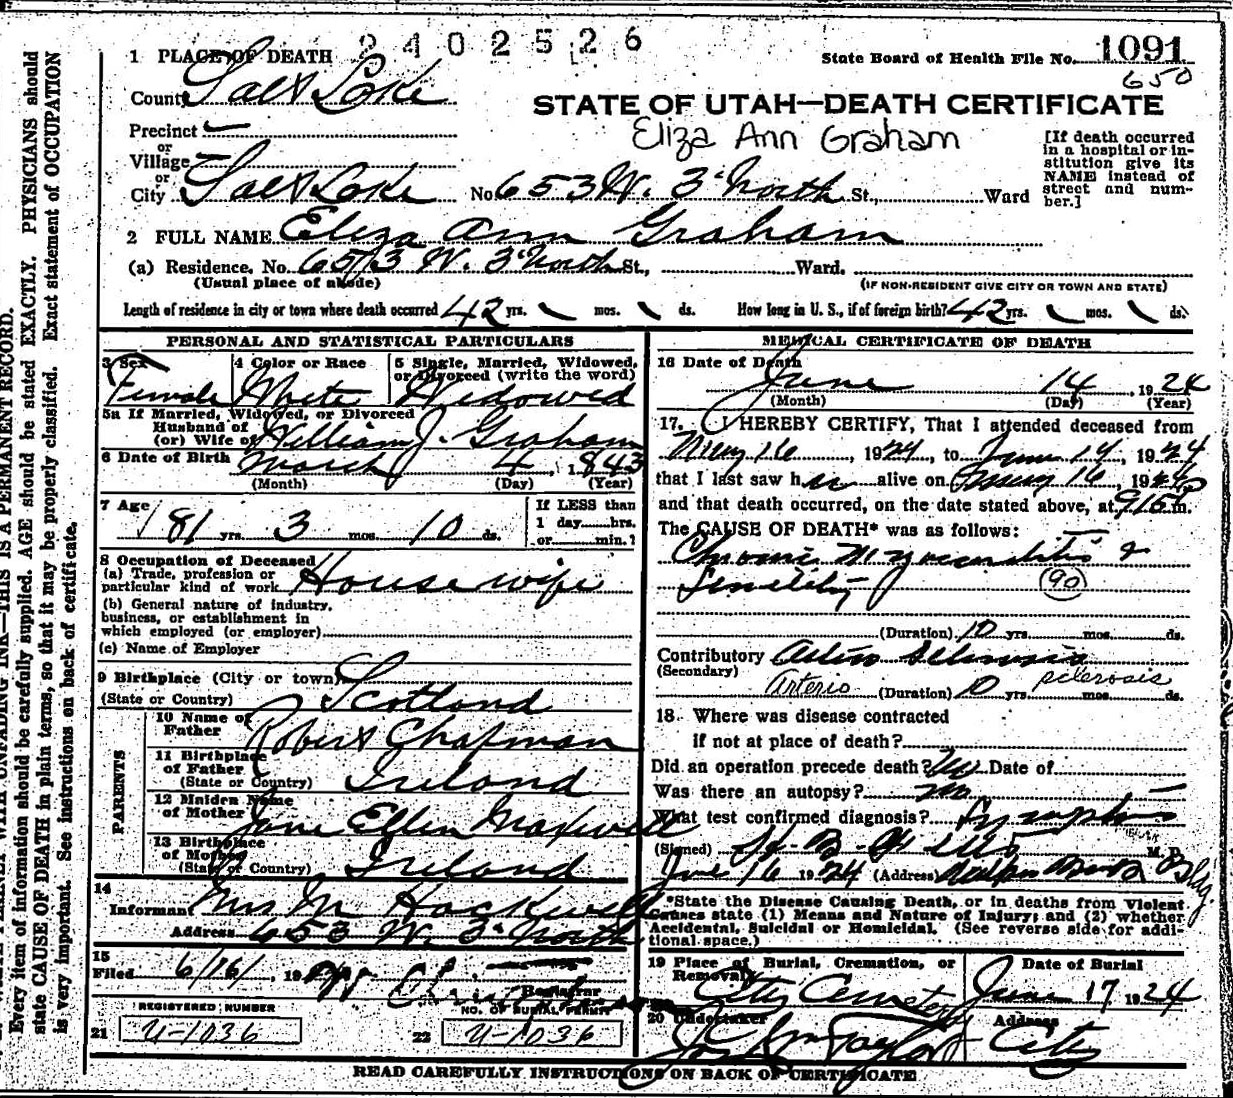 2402526
1 PLACE OF DEATH
State Board of Health File No. 1091
650
County Salt Lake
STATE OF UTAH—DEATH CERTIFICATE
Eliza Ann Graham
Precinct
or
Village
or
City Salt Lake No. 653 W. 3 North St., Ward
[If death occurred
in a hospital or in-
stitution give its
NAME instead of
street and num-
ber.]
2 FULL NAME Eliza Ann Graham
(a) Residence. No. 653 W. 3 North St., Ward.
(Usual place of abode)
(IF NON-RESIDENT GIVE CITY OR TOWN AND STATE)
Length of residence in city or town where death occurred 42 yrs. mos. ds. How long in U. S., if of foreign birth? 42 yrs. mos. ds.
PERSONAL AND STATISTICAL PARTICULARS
3 Sex
Female
4 Color or Race
White
5 Single, Married, Widowed,
or Divorced (write the word)
Widowed
5a If Married, Widowed, or Divorced
Husband of
(or) Wife of William J. Graham
6 Date of Birth March 4, 1843
(Month) (Day) (Year)
7 Age
81 yrs. 3 mos. 10 ds.
If LESS than
1 day......hrs.
or......min.?
8 Occupation of Deceased
(a) Trade, profession or
particular kind of work Housewife
(b) General nature of industry,
business, or establishment in
which employed (or employer)
(c) Name of Employer
9 Birthplace (City or town)
(State or Country) Scotland
PARENTS
10 Name of
Father Robert Chapman
11 Birthplace
of Father
(State or Country) Ireland
12 Maiden Name
of Mother Jane Ellen Maxwell
13 Birthplace
of Mother
(State or Country) Ireland
14
Informant Mrs M Hackwell
Address 653 W. 3 North
15
Filed 6/16/, 19
Registrar
REGISTERED NUMBER
21 U-1036
NO. OF BURIAL PERMIT
22 U-1036
MEDICAL CERTIFICATE OF DEATH
16 Date of Death
June 14, 1924
(Month) (Day) (Year)
17. I HEREBY CERTIFY, That I attended deceased from
May 16, 1924, to June 14, 1924
that I last saw her alive on May 16, 1924
and that death occurred, on the date stated above, at 915 P m.
The CAUSE OF DEATH* was as follows:
Chronic Myocarditis &
Senility (90)
(Duration) 10 yrs. mos. ds.
Contributory Arterio Sclerosis
(Secondary)
Arterio sclerosis
(Duration) 10 yrs. mos. ds.
18. Where was disease contracted
if not at place of death?
Did an operation precede death? No Date of
Was there an autopsy? no
What test confirmed diagnosis? Symptoms
(Signed) M. D.
June 16 1924 (Address) Bldg.
*State the Disease Causing Death, or in deaths from Violent
Causes state (1) Means and Nature of Injury; and (2) whether
Accidental, Suicidal or Homicidal. (See reverse side for addi-
tional space.)
19 Place of Burial, Cremation, or
Removal
City Cemetery
Date of Burial
June 17 1924
20 Undertaker
Jos Wm Taylor
Address
City
READ CAREFULLY INSTRUCTIONS ON BACK OF CERTIFICATE
UNFADING INK—THIS IS A PERMANENT RECORD.
Every item of information should be carefully supplied. AGE should be stated EXACTLY. PHYSICIANS should
state CAUSE OF DEATH in plain terms, so that it may be properly classified. Exact statement of OCCUPATION
is very important. See instructions on back of certificate.